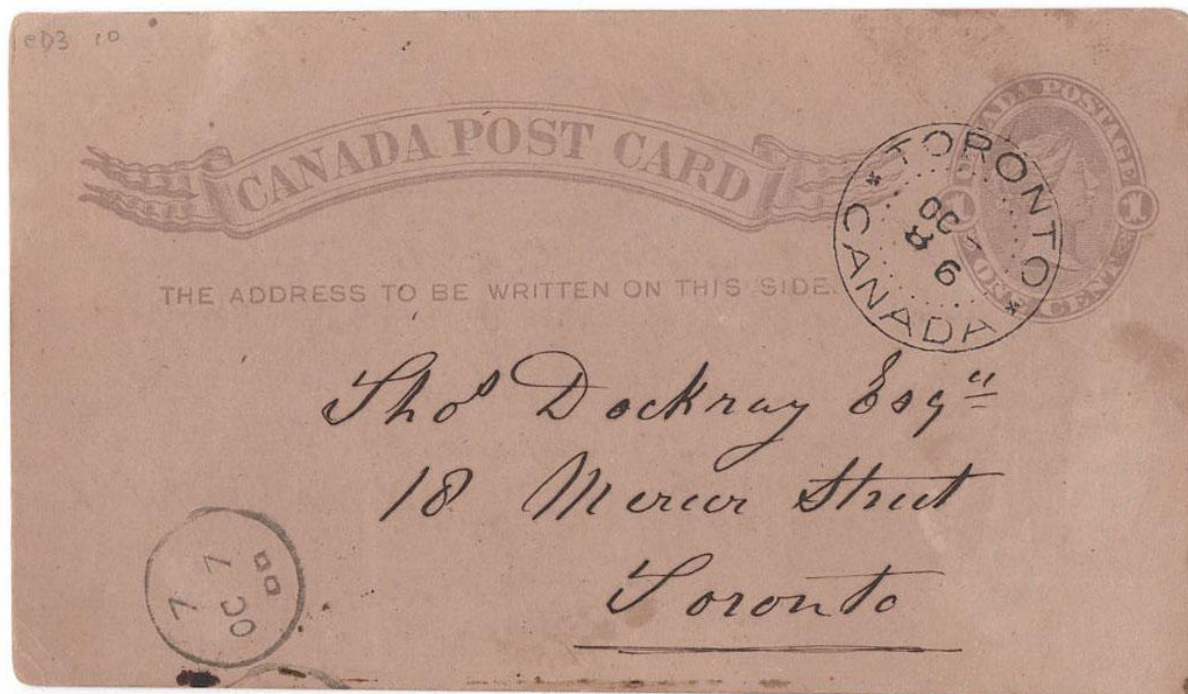 CD3 10
CANADA POST CARD
CANADA POSTAGE
1 1
ONE CENT
TORONTO
OC
8 6
CANADA
THE ADDRESS TO BE WRITTEN ON THIS SIDE.
Thos Dockray Esqre
18 Mercer Street
Toronto
OC 7
7